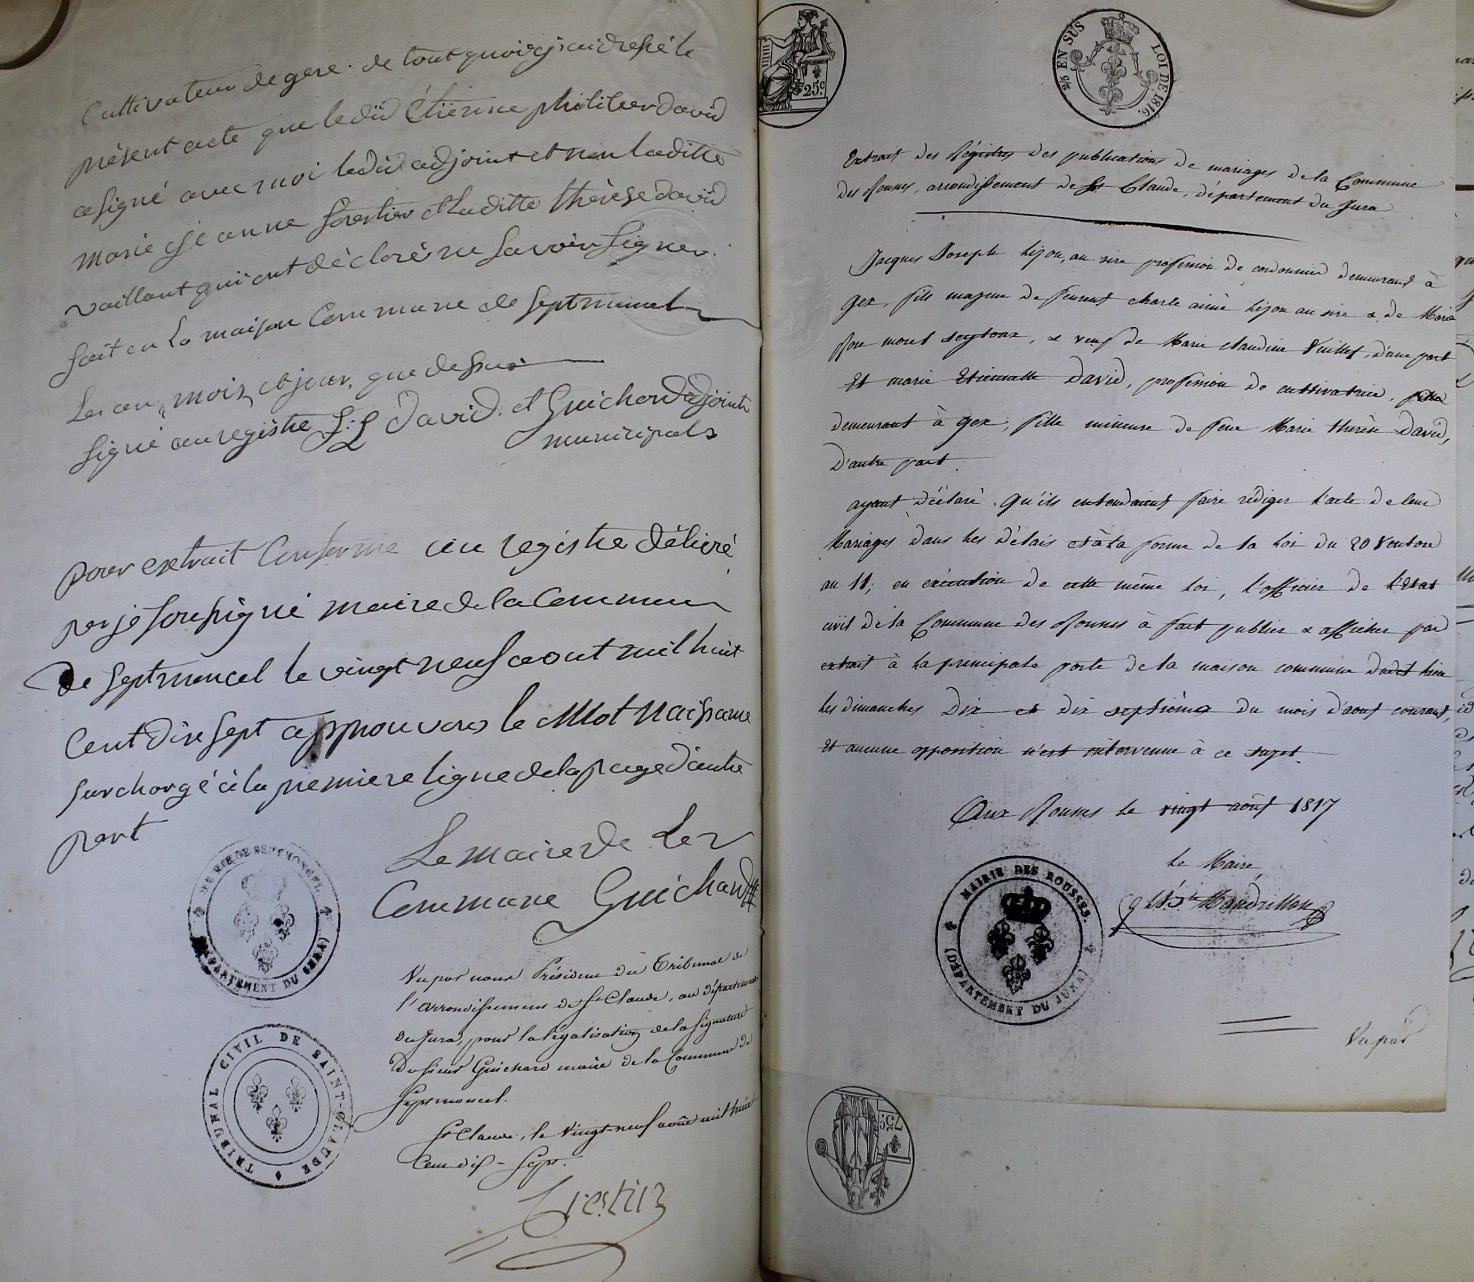 Cultivateur de gex. de tout quoi j'ai dressé le
présent acte que ledit Étienne philibert david
a signé avec moi ledit adjoint et non laditte
marie jeanne forestier et laditte thérèse david
vaillant qui ont déclaré ne savoir signer.
fait en la maison Commune de Septmoncel
Les an, mois, et jour, que dessus
signé au registre david. et Guichard adjoint
municipals
pour extrait Conforme au registre délivré
par je soussigné maire de la Commune
de Septmoncel le vingt neuf aout mil huit
Cent dix sept approuvons le Mot
surchargé à la premiere ligne de la page d'autre
part
Le maire de
Commune Guichard
MAIRIE DE SEPTMONCEL
DÉPARTEMENT DU JURA
Vu par nous Président du Tribunal de
l'arrondissement de St Claude, au département
du Jura, pour la légalisation de la signature
Du Sieur Guichard maire de la Commune de
Septmoncel.
St Claude, le vingt-neuf août mil huit
Cent dix-Sept.
TRIBUNAL CIVIL DE SAINT-CLAUDE
25c
2/5 EN SUS LOI DE 1816.
Extrait des Régistres des publications de mariages de la Commune
Des Rousses, arrondissement de St Claude, département du Jura
Jacques Joseph Lizon, au sire profession de cordonnier demeurant à
gex, fils majeur de feu Charle aimé Lizon au sire & de Marie
Rose, & veuf de Marie Claudine Vuillet, d'une part
Et marie Etiennette David, profession de cultivatrice,
demeurant à gex, fille mineure de feue Marie thérèse David,
D'autre part.
ayant déclaré qu'ils entendaient faire rédiger l'acte de leur
Mariages dans les Délais et à la forme de la Loi du 20 Ventose
an 11; en exécution de cette même loi, l'officier de l'Etat
civil de la Commune des Rousses à fait publier & afficher par
extrait à la principale porte de la maison commune dudit lieu
les dimanches Dix et dix septième du mois d'aout courant,
Et aucune opposition n'est intervenue à ce sujet.
Aux Rousses le vingt août 1817
Le Maire
Mandrillon
MAIRIE DES ROUSSES.
(DÉPARTEMENT DU JURA)
Vu par
75c